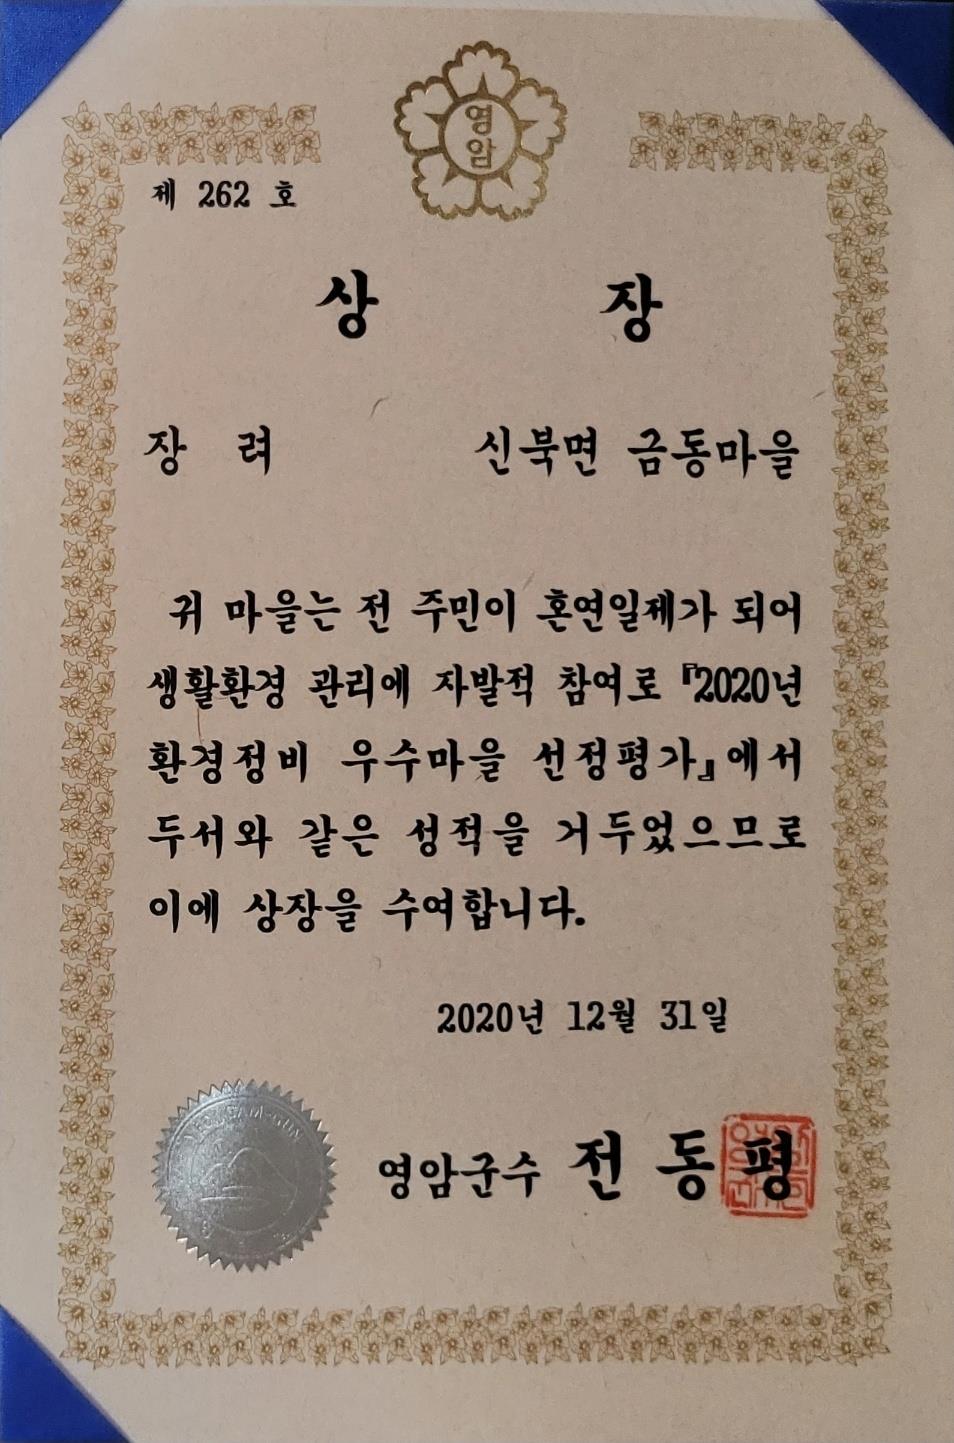 영암
제 262 호
상 장
장 려 신북면 금동마을
귀 마을는 전 주민이 혼연일제가 되어
생활환경 관리에 자발적 참여로 『2020년
환경정비 우수마을 선정평가』에서
두서와 같은 성적을 거두었으므로
이에 상장을 수여합니다.
2020년 12월 31일
영암군수 전 동 평